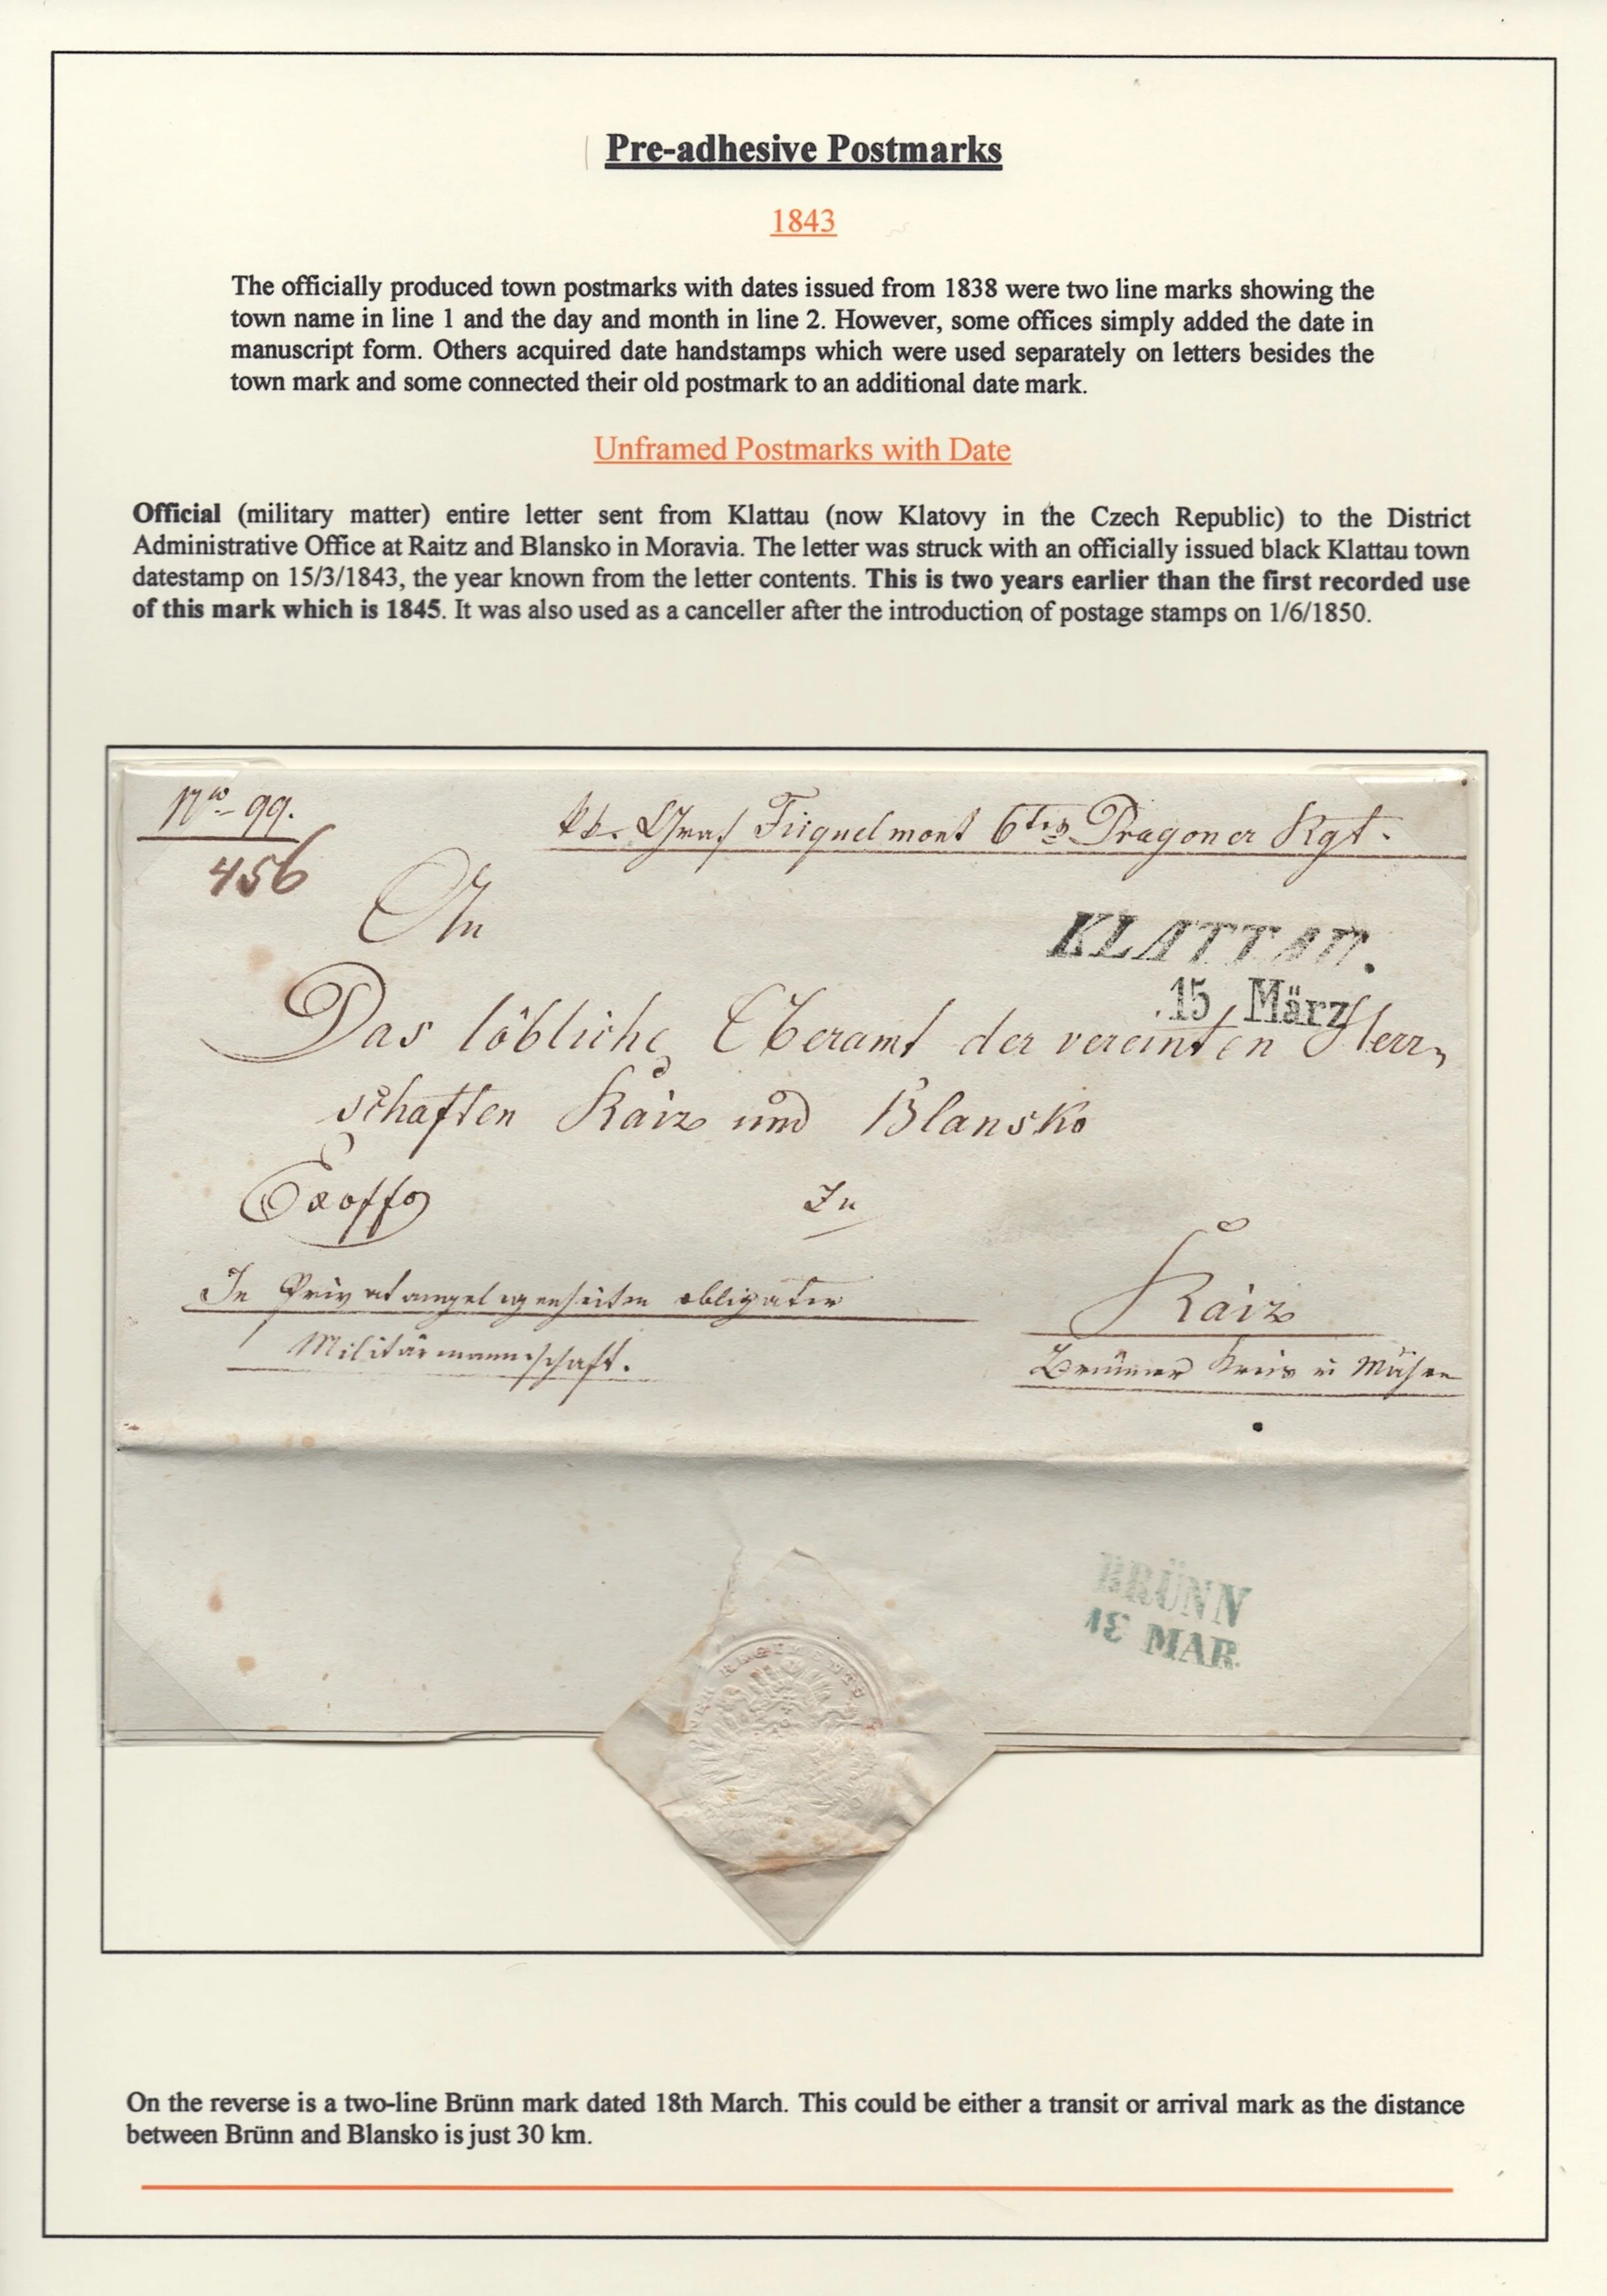 Pre-adhesive Postmarks
1843
The officially produced town postmarks with dates issued from 1838 were two line marks showing the
town name in line 1 and the day and month in line 2. However, some offices simply added the date in
manuscript form. Others acquired date handstamps which were used separately on letters besides the
town mark and some connected their old postmark to an additional date mark.
Unframed Postmarks with Date
Official (military matter) entire letter sent from Klattau (now Klatovy in the Czech Republic) to the District
Administrative Office at Raitz and Blansko in Moravia. The letter was struck with an officially issued black Klattau town
datestamp on 15/3/1843, the year known from the letter contents. This is two years earlier than the first recorded use
of this mark which is 1845. It was also used as a canceller after the introduction of postage stamps on 1/6/1850.
Nro 99.
456
kk. Graf Fiquelmont 6tes Dragoner Rgt.
An
KLATTAU.
15 März
Das löbliche Oberamt der vereinten Herr-
schaften Raiz und Blansko
Exoffo
In
In Privatangelegenheiten obligater
Militärmannschaft.
Raiz
Brünner Kreis in Mähren
BRÜNN
18 MAR.
REGIMENTS
On the reverse is a two-line Brünn mark dated 18th March. This could be either a transit or arrival mark as the distance
between Brünn and Blansko is just 30 km.